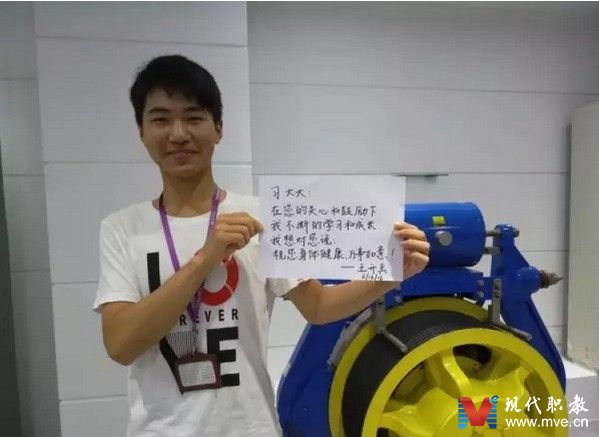 习大大:
在您的关心和鼓励下
我不断的学习和成长
我想对您说:
祝您身体健康、万事如意!
LO
FOREVER
VE
现代职教
www.mve.cn